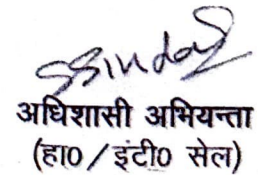 अधिशासी अभियन्ता
(हा0/इंटी0 सेल)